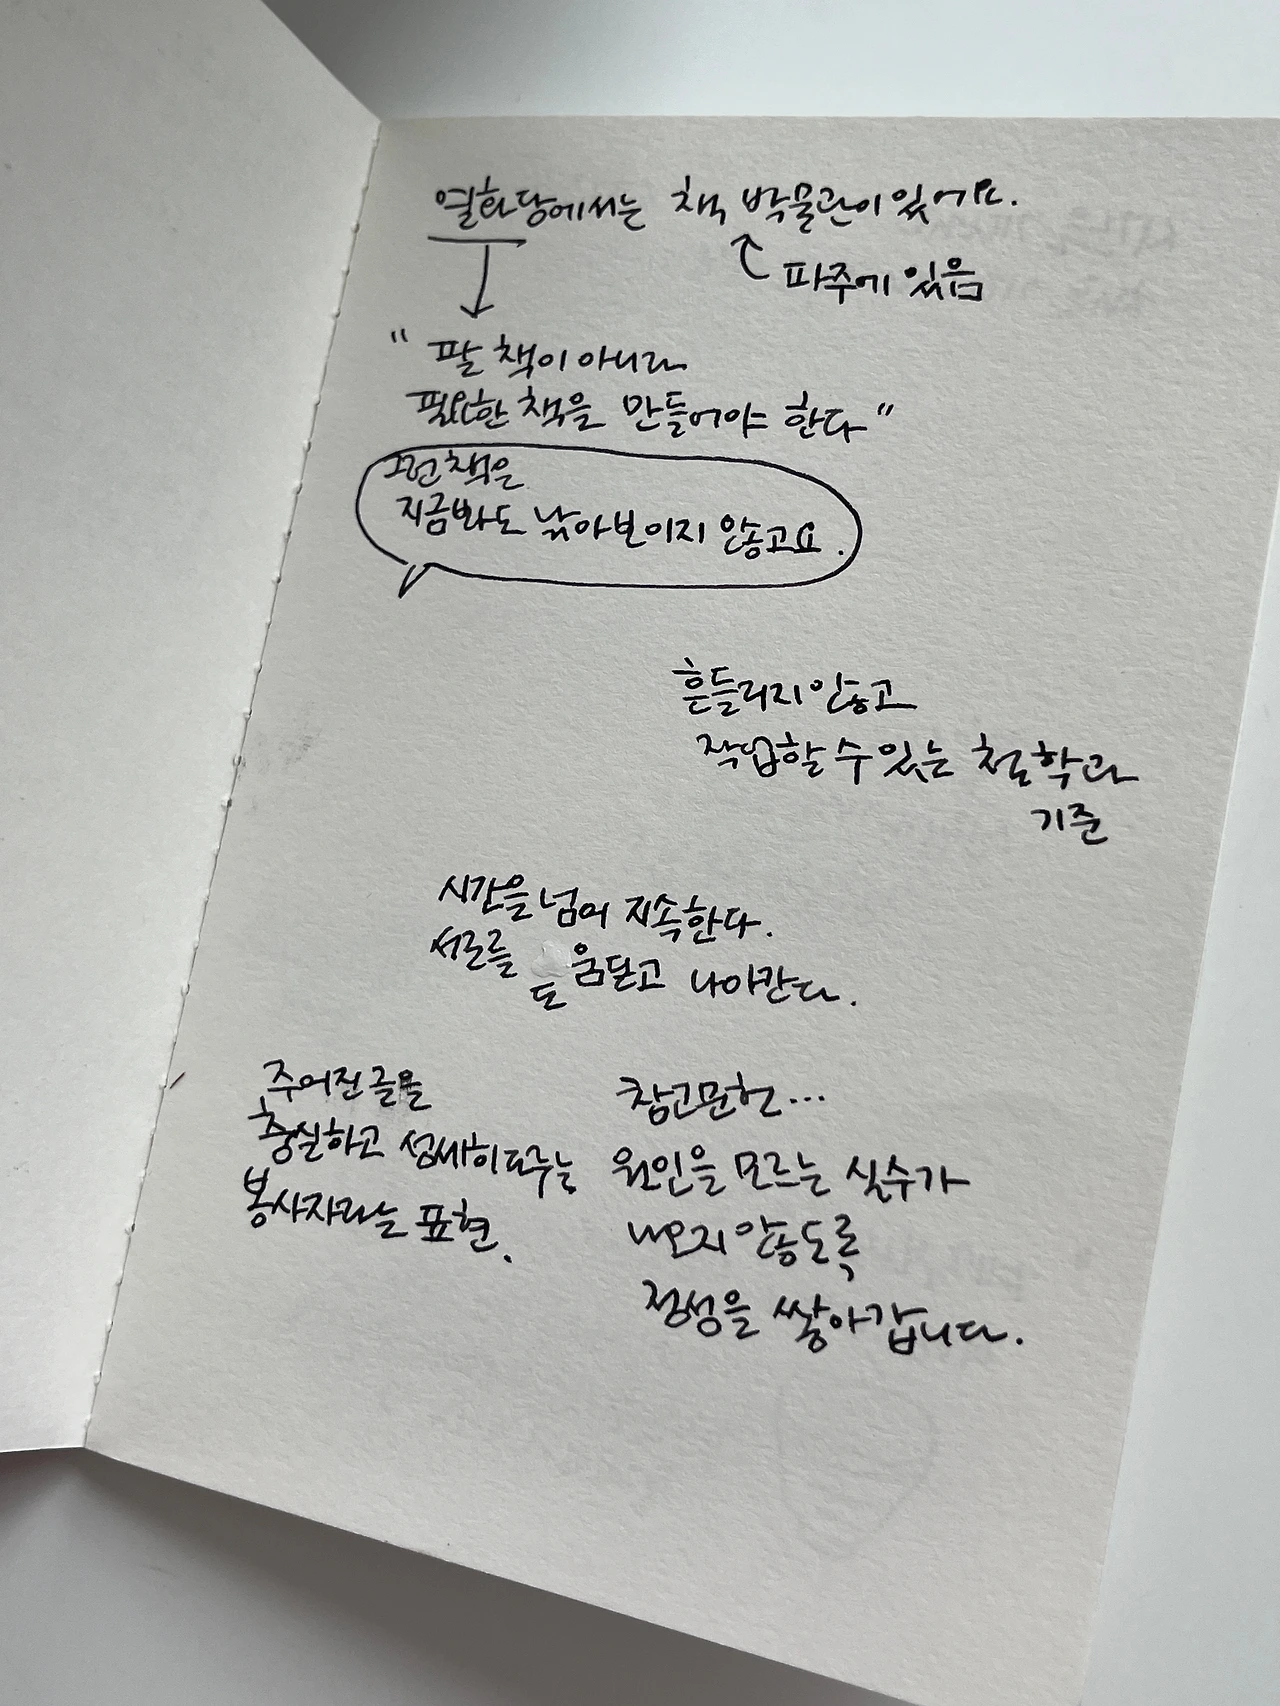 열화당에서는 책 박물관이 있어요.
파주에 있음
"팔 책이 아니라
필요한 책을 만들어야 한다"
그런 책은
지금봐도 낡아보이지 않고요.
흔들리지 않고
작업할 수 있는 철학과
기준
시간을 넘어 지속한다.
서로를 도움닫고 나아간다.
주어진 글을
충실하고 섬세히 다루는
봉사자라는 표현.
참고문헌...
원인을 모르는 실수가
나오지 않도록
정성을 쌓아갑니다.